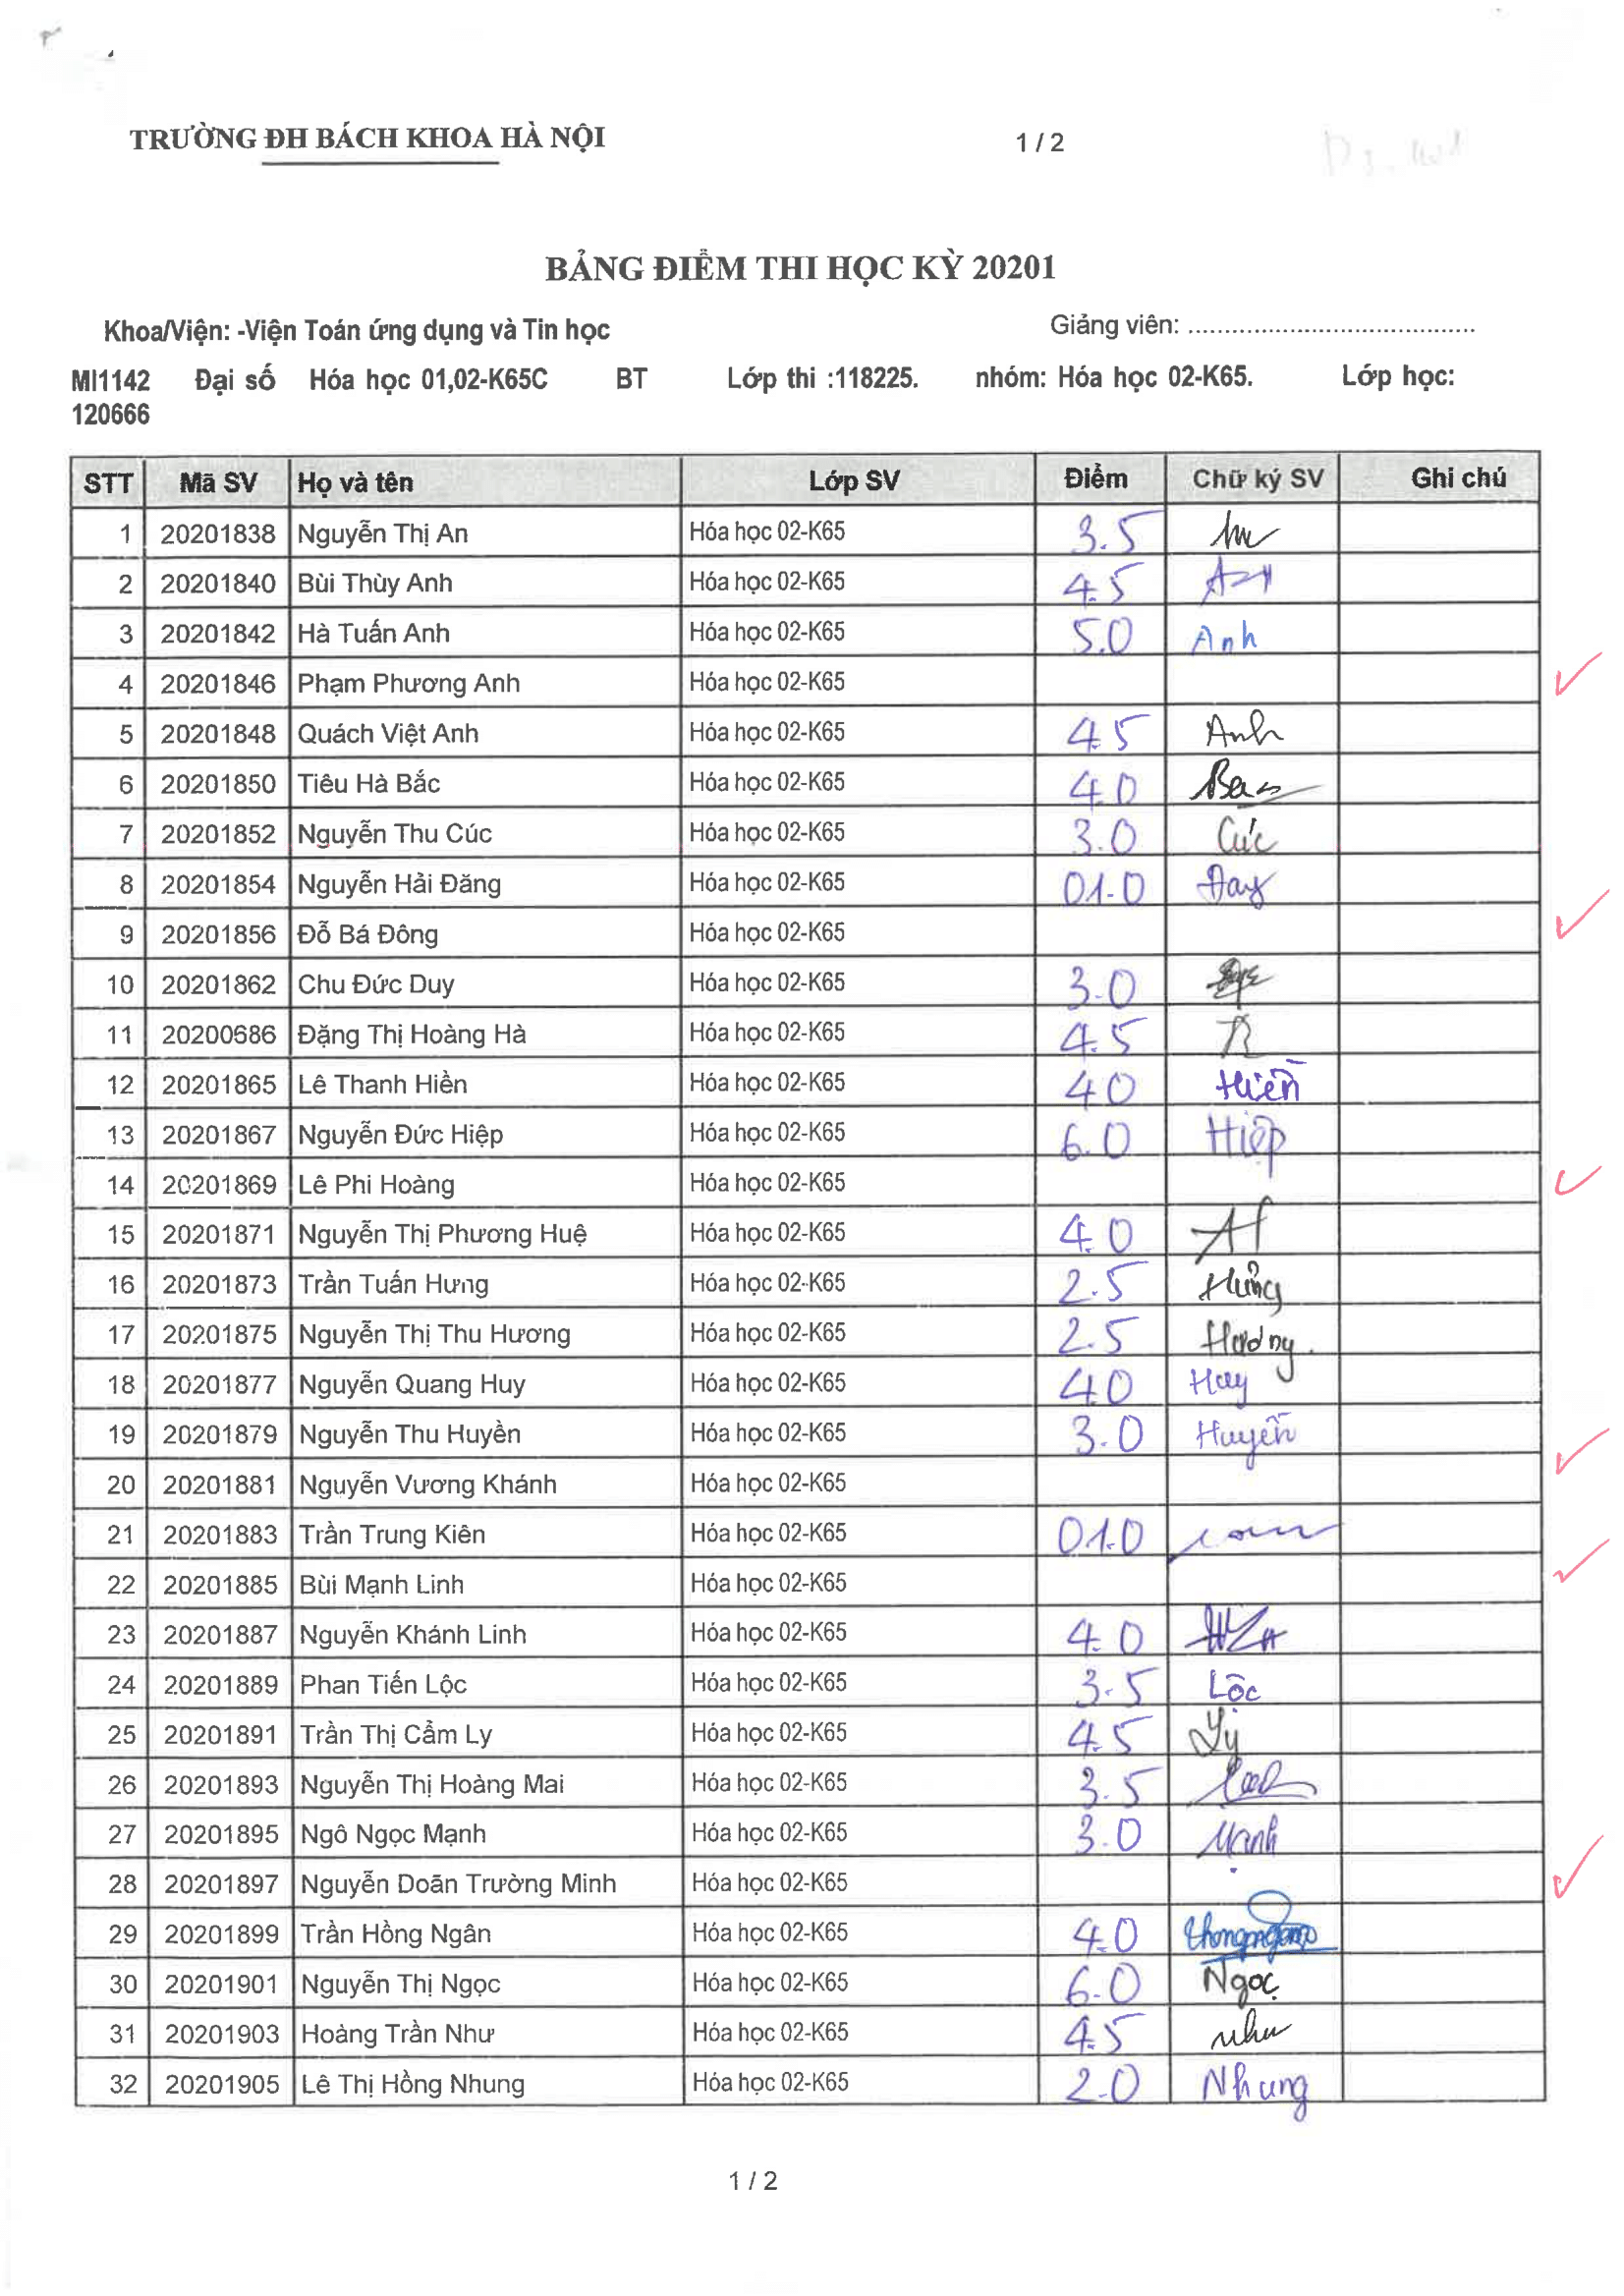 TRƯỜNG ĐH BÁCH KHOA HÀ NỘI 1 / 2
BẢNG ĐIỂM THI HỌC KỲ 20201
Khoa/Viện: -Viện Toán ứng dụng và Tin học Giảng viên: ......................................
MI1142 Đại số Hóa học 01,02-K65C BT Lớp thi :118225. nhóm: Hóa học 02-K65. Lớp học:
120666
STT Mã SV Họ và tên Lớp SV Điểm Chữ ký SV Ghi chú
1 20201838 Nguyễn Thị An Hóa học 02-K65 3.5
2 20201840 Bùi Thùy Anh Hóa học 02-K65 4.5
3 20201842 Hà Tuấn Anh Hóa học 02-K65 5.0 Anh
4 20201846 Phạm Phương Anh Hóa học 02-K65
5 20201848 Quách Việt Anh Hóa học 02-K65 4.5 Anh
6 20201850 Tiêu Hà Bắc Hóa học 02-K65 4.0
7 20201852 Nguyễn Thu Cúc Hóa học 02-K65 3.0 Cúc
8 20201854 Nguyễn Hải Đăng Hóa học 02-K65 01.0
9 20201856 Đỗ Bá Đông Hóa học 02-K65
10 20201862 Chu Đức Duy Hóa học 02-K65 3.0
11 20200686 Đặng Thị Hoàng Hà Hóa học 02-K65 4.5
12 20201865 Lê Thanh Hiền Hóa học 02-K65 4.0 Hiền
13 20201867 Nguyễn Đức Hiệp Hóa học 02-K65 6.0 Hiệp
14 20201869 Lê Phi Hoàng Hóa học 02-K65
15 20201871 Nguyễn Thị Phương Huệ Hóa học 02-K65 4.0
16 20201873 Trần Tuấn Hưng Hóa học 02-K65 2.5 Hưng
17 20201875 Nguyễn Thị Thu Hương Hóa học 02-K65 2.5 Hương
18 20201877 Nguyễn Quang Huy Hóa học 02-K65 4.0 Huy
19 20201879 Nguyễn Thu Huyền Hóa học 02-K65 3.0 Huyền
20 20201881 Nguyễn Vương Khánh Hóa học 02-K65
21 20201883 Trần Trung Kiên Hóa học 02-K65 01.0
22 20201885 Bùi Mạnh Linh Hóa học 02-K65
23 20201887 Nguyễn Khánh Linh Hóa học 02-K65 4.0
24 20201889 Phan Tiến Lộc Hóa học 02-K65 3.5 Lộc
25 20201891 Trần Thị Cẩm Ly Hóa học 02-K65 4.5 Ly
26 20201893 Nguyễn Thị Hoàng Mai Hóa học 02-K65 3.5
27 20201895 Ngô Ngọc Mạnh Hóa học 02-K65 3.0 Mạnh
28 20201897 Nguyễn Doãn Trường Minh Hóa học 02-K65
29 20201899 Trần Hồng Ngân Hóa học 02-K65 4.0
30 20201901 Nguyễn Thị Ngọc Hóa học 02-K65 6.0 Ngọc
31 20201903 Hoàng Trần Như Hóa học 02-K65 4.5 như
32 20201905 Lê Thị Hồng Nhung Hóa học 02-K65 2.0 Nhung
1 / 2